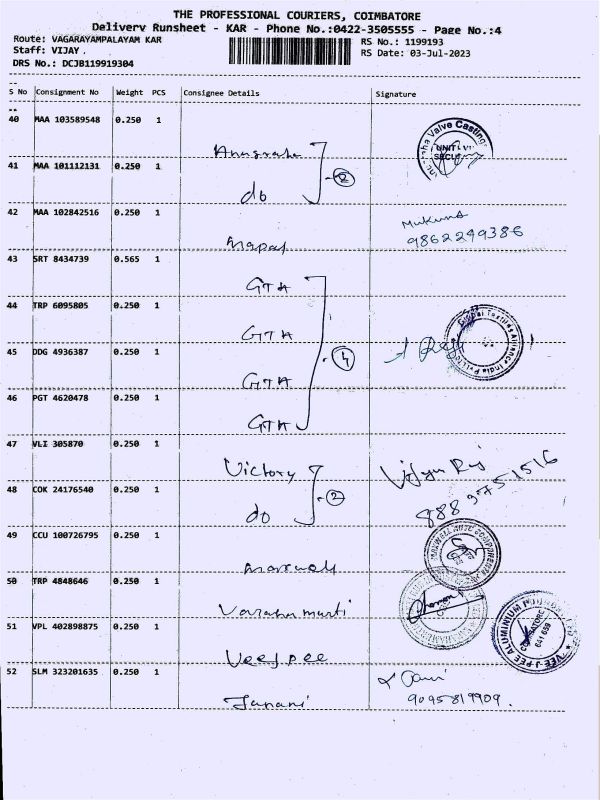 THE PROFESSIONAL COURIERS, COIMBATORE
Delivery Runsheet - KAR - Phone No.:0422-3505555 - Page No.:4
Route: VAGARAYAMPALAYAM KAR
RS No.: 1199193
Staff: VIJAY .
RS Date: 03-Jul-2023
DRS No.: DCJB119919304
S No Consignment No Weight PCS Consignee Details Signature
40 MAA 103589548 0.250 1
Valve Castings
UNIT-VI
41 MAA 101112131 0.250 1
do
2
42 MAA 102842516 0.250 1
9862249386
43 SRT 8434739 0.565 1
GTA
44 TRP 6095805 0.250 1
GTA
45 DDG 4936387 0.250 1
GTA
4
Global Textiles Alliance India
46 PGT 4620478 0.250 1
GTA
47 VLI 305870 0.250 1
Victory
48 COK 24176540 0.250 1
do
2
888 9751516
49 CCU 100726795 0.250 1
Maxwell
MAXWELL AUTO COMPONENTS
50 TRP 4848646 0.250 1
51 VPL 402898875 0.250 1
Veejpee
VEE J PEE ALUMINIUM
COIMBATORE
641 659
52 SLM 323201635 0.250 1
Janani
9095819909.